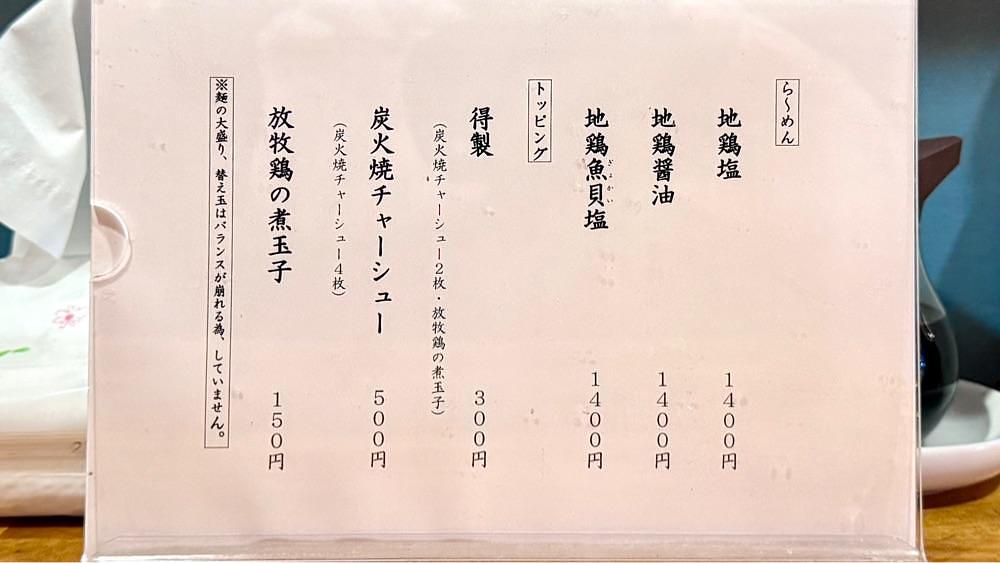 ら～めん
地鶏塩 1400円
地鶏醤油 1400円
地鶏魚貝塩 1400円
ぎょかい
トッピング
得製 300円
（炭火焼チャーシュー2枚・放牧鶏の煮玉子）
炭火焼チャーシュー 500円
（炭火焼チャーシュー4枚）
放牧鶏の煮玉子 150円
※麺の大盛り、替え玉はバランスが崩れる為、していません。